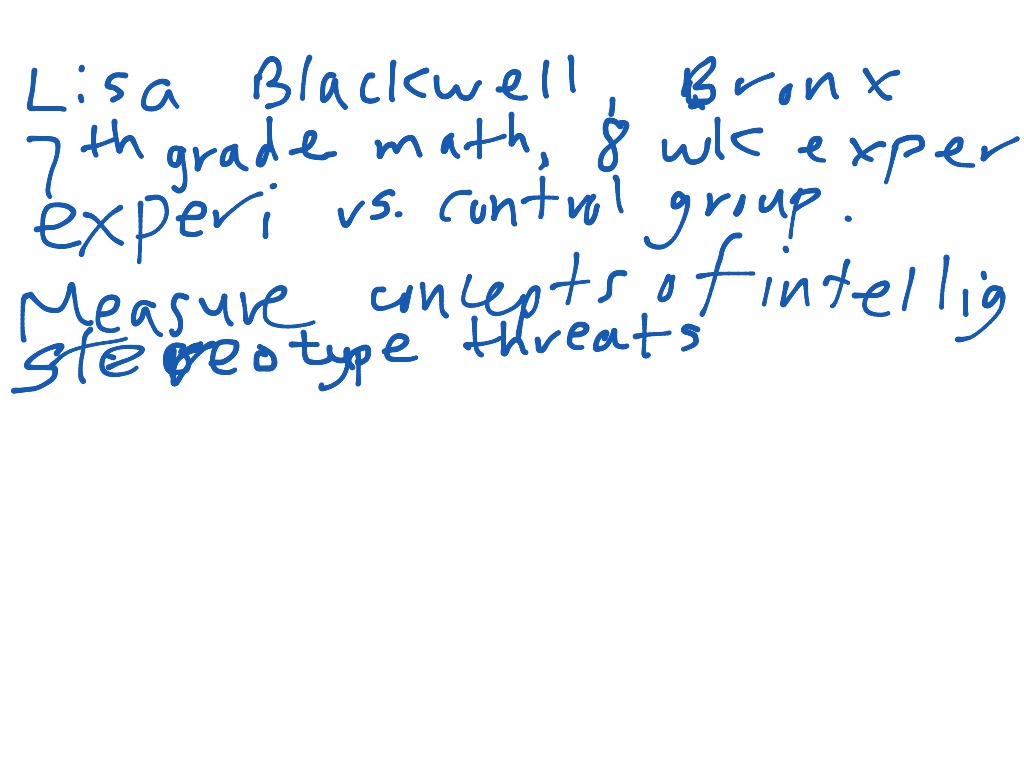 Lisa Blackwell, Bronx
7th grade math, 8 wk exper
experi vs. control group.
Measure concepts of intellig
stereotype threats